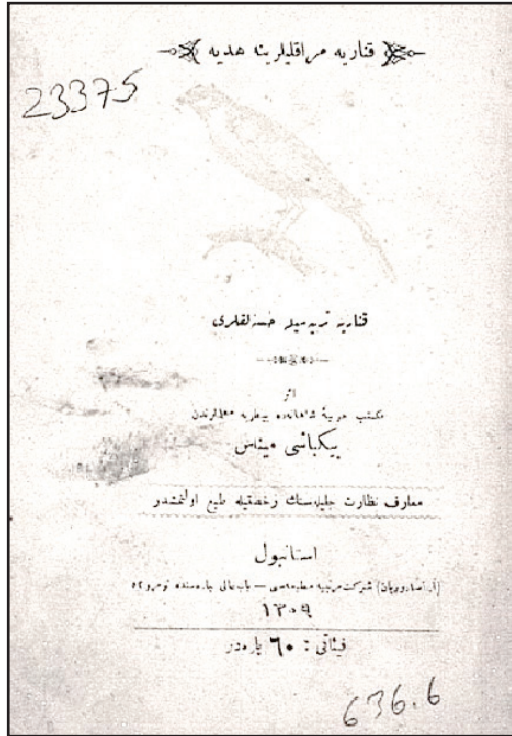 قناریه مراقلیلرینه هدیه
23375
قناریه تربیه سیله خسته لقلری
اثر
مکتب حربیهٔ شاهانه ده بیطریه معلملرندن
بیکباشی میناس
معارف نظارت جلیله سنک رخصتیله طبع اولنمشدر
استانبول
شرکت مرتبیه مطبعه سی — باب عالی جاده سنده نومرو ٥٢
١٣٠٩
فیئاتی : ٦٠ پاره در
636.6